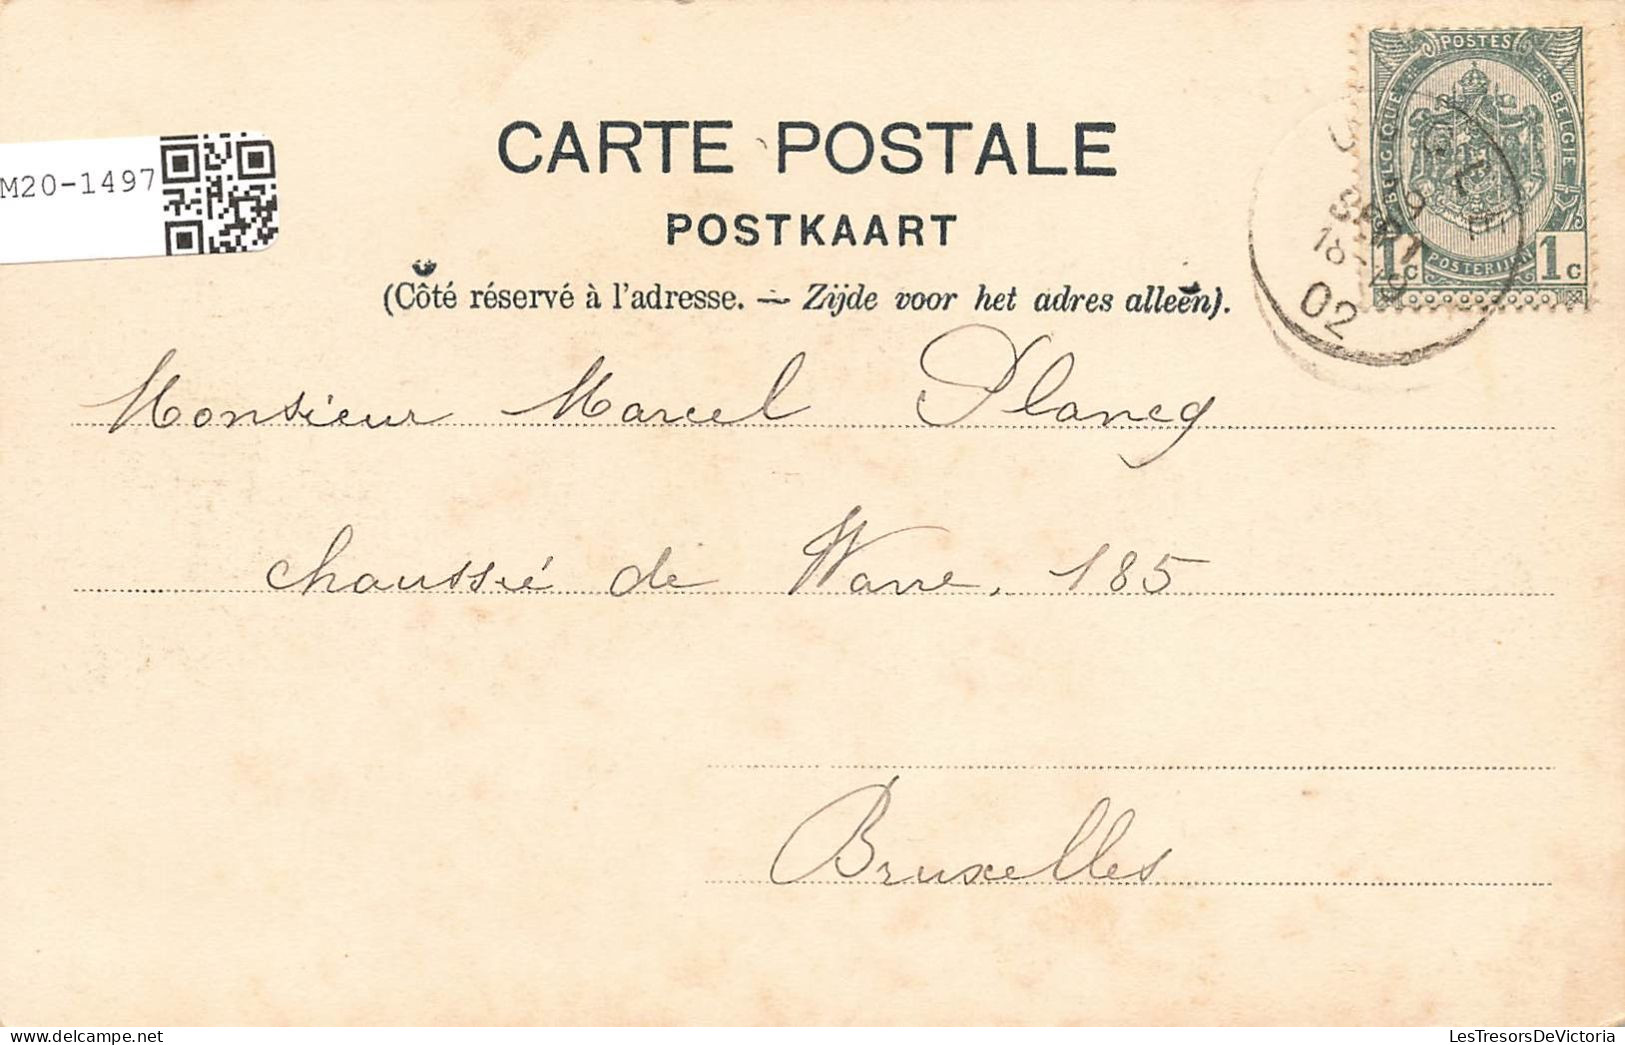 POSTES
BELGIQUE
BELGIE
POSTERIJEN
1c 1c
02
M20-1497
CARTE POSTALE
POSTKAART
(Côté réservé à l'adresse. — Zijde voor het adres alleen).
Monsieur Marcel Plancq
chaussée de Wavre, 185
Bruxelles
LesTresorsDeVictoria